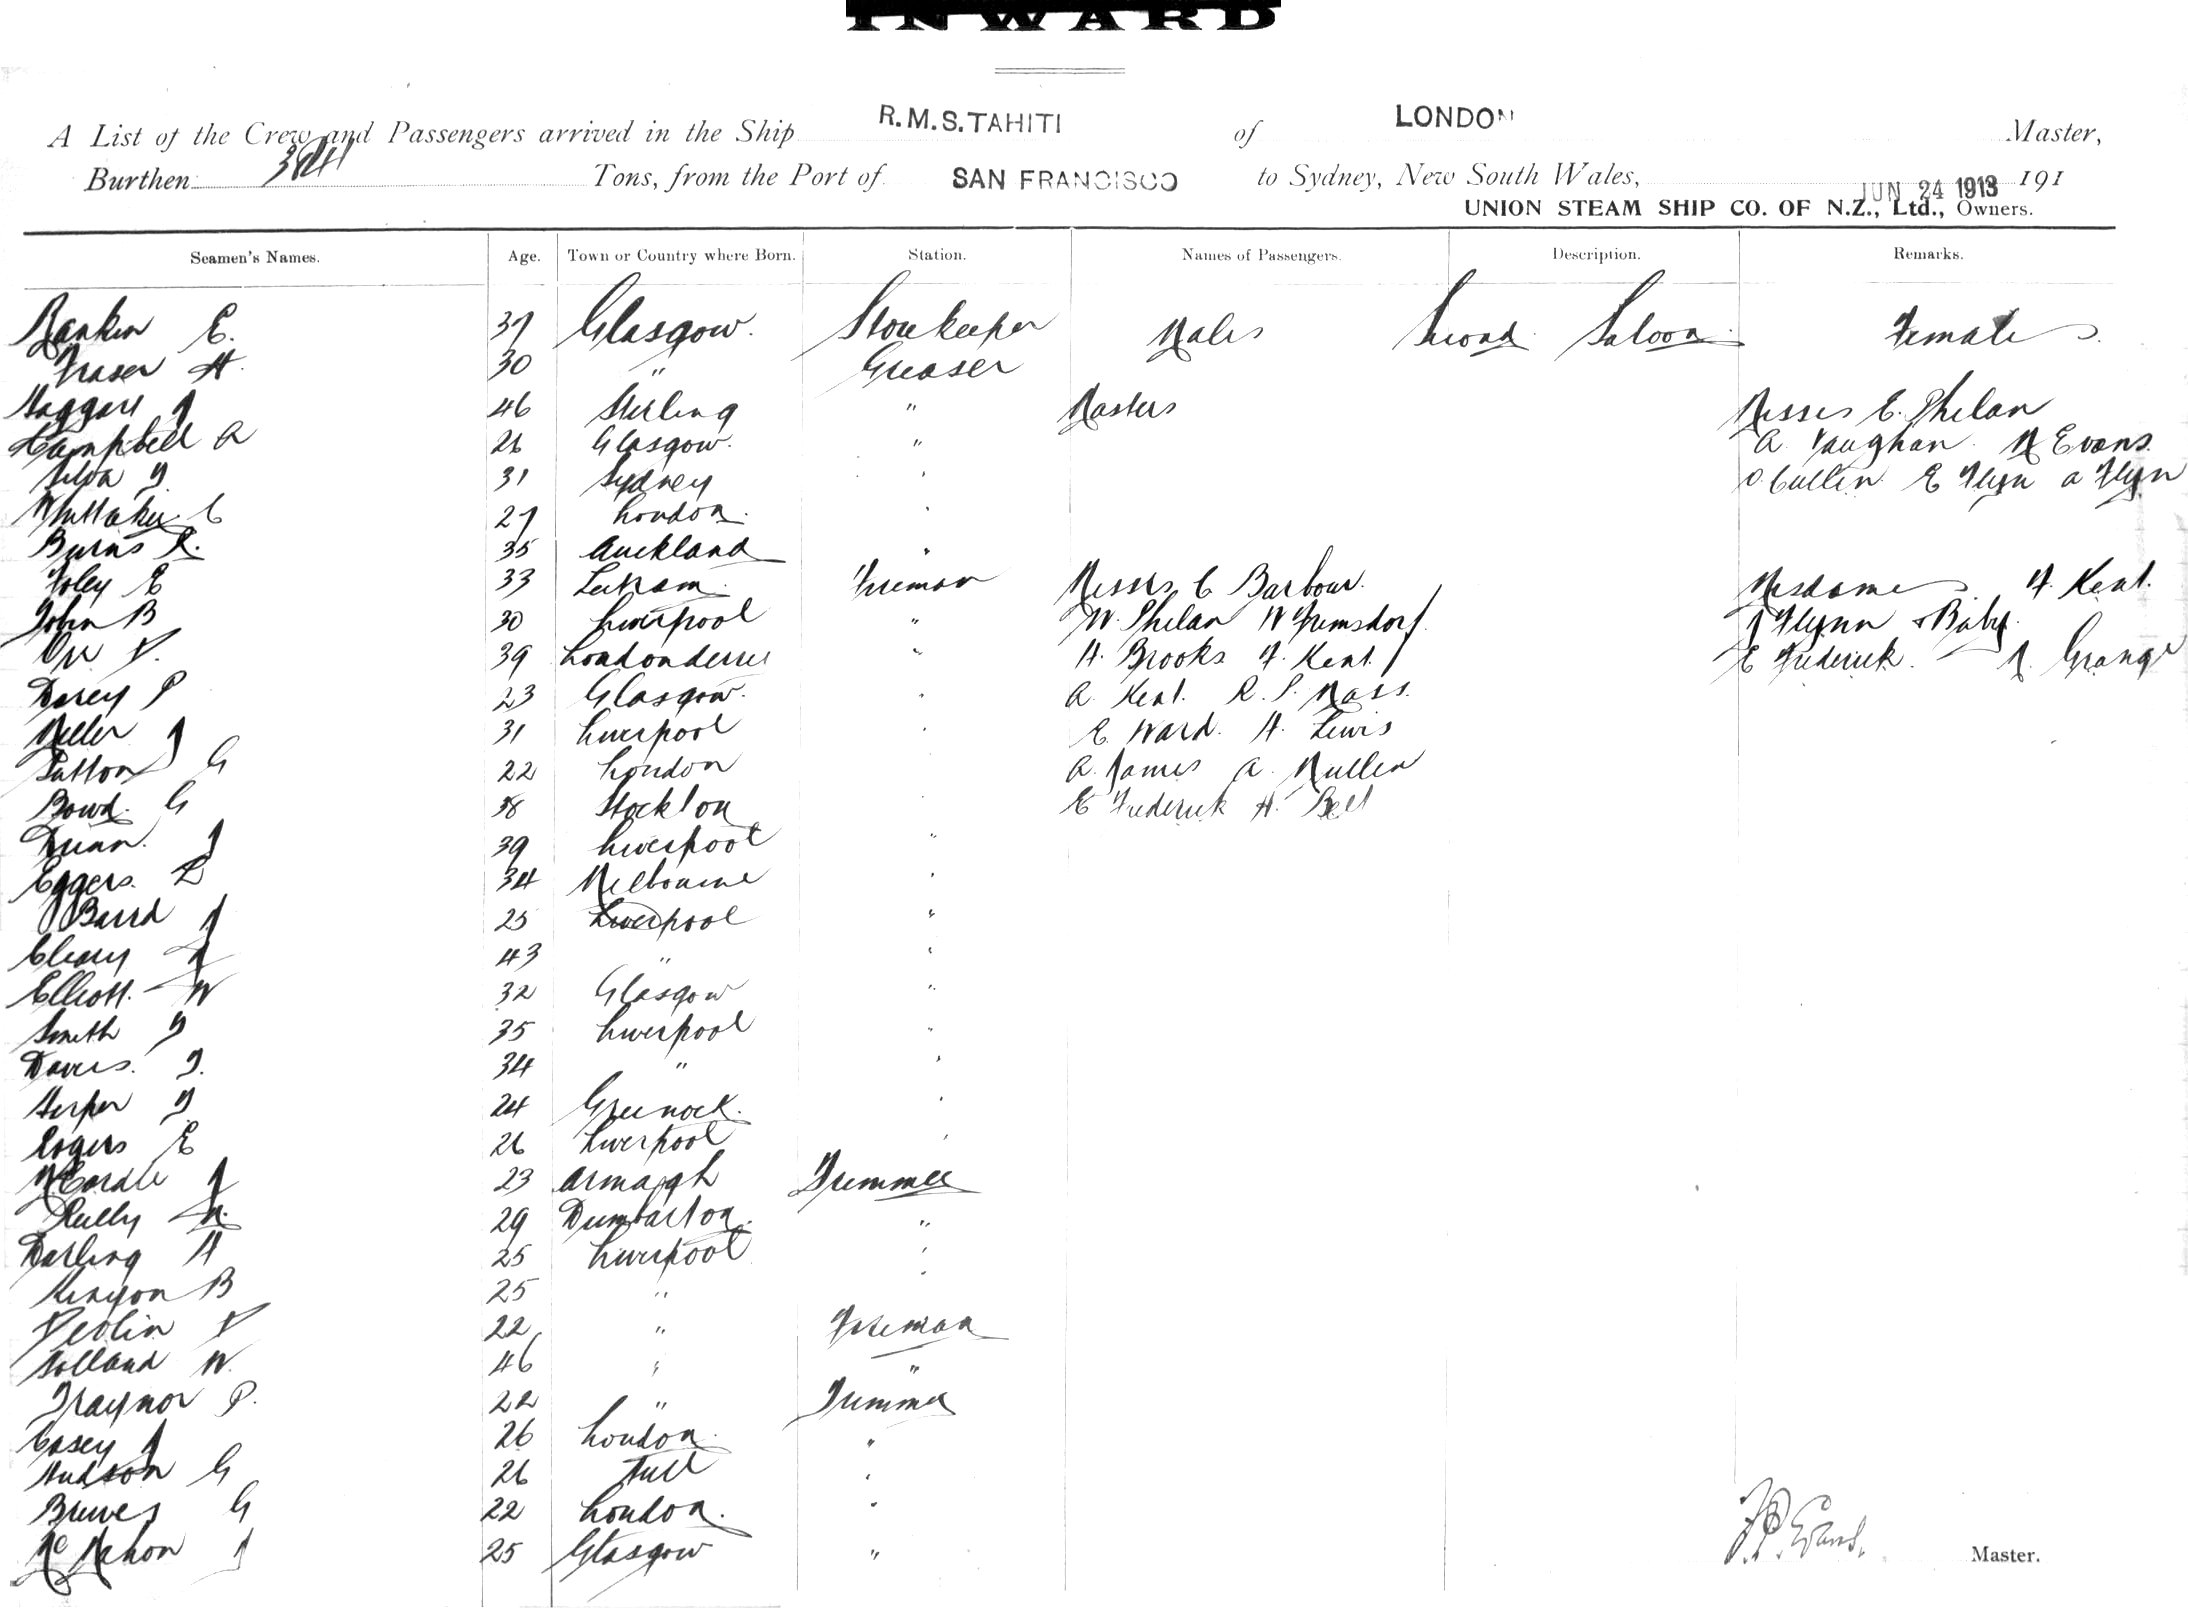 INWARD
A List of the Crew and Passengers arrived in the Ship R.M.S. TAHITI of LONDON Master,
Burthen Tons, from the Port of SAN FRANCISCO to Sydney, New South Wales, JUN 24 1913 191
UNION STEAM SHIP CO. OF N.Z., Ltd., Owners.
Seamen's Names. Age. Town or Country where Born. Station. Names of Passengers. Description. Remarks.
Rankin E. 37 Glasgow. Storekeeper Males Second Saloon Females
Fraser H. 30 " Greaser
Haggart J 46 Stirling " Masters Misses E. Phelan
Campbell A 26 Glasgow. " A. Vaughan M Evans.
Silva 31 Sydney " Cullen E Flyn A Flyn
Whittaker C 27 London "
Burns R. 35 Auckland "
Foley E 33 Leitram Fireman Messrs C Barbour. Mesdames F. Kent.
Tobin B 30 Liverpool " W. Phelan W Grimsdorf J Flynn & Baby.
Orr V. 39 Londonderry " H. Brooks F. Kent. E Frederick. Grange
Darcy P 23 Glasgow. " A Kent. R. S. Mass.
Miller J 31 Liverpool " E. Ward. H. Lewis
Sutton G 22 London " A. James A. Mullen
Bowd. G 38 Stockton " E Frederick H. Bell
Dunn. J 39 Liverpool "
Eggers. L 34 Melbourne "
Baird J 25 Liverpool "
Cleary J 43 " "
Elliott. W 32 Glasgow "
Smith 35 Liverpool "
Davies. 34 " "
Harper 24 Greenock. "
Rogers E 26 Liverpool "
McCardle J 23 Armagh Trimmer
Reilly 29 Dumbarton. "
Darling H 25 Liverpool "
Kenyon B 25 " "
Devlin V 22 " Fireman
Holland W. 46 " "
Traynor P. 22 " Trimmer
Casey J 26 London. "
Hudson G 26 Hull "
G 22 London. "
McMahon J 25 Glasgow "
Evans. Master.